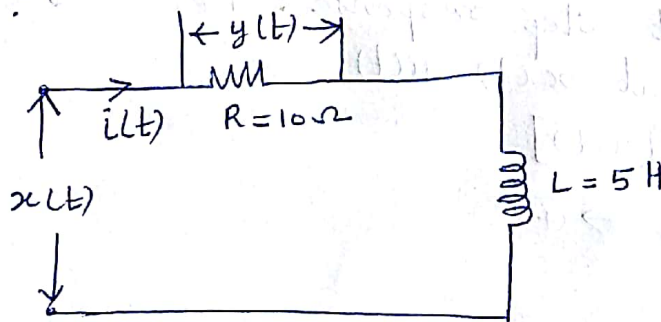 y(t)
i(t)
R = 10 Ω
x(t)
L = 5 H